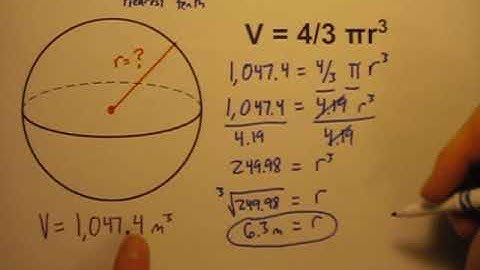 nearest tenth
V = 4/3 πr³
r = ?
1,047.4 = 4/3 π r³
1,047.4 = 4.19 r³
4.19 4.19
249.98 = r³
³√249.98 = r
6.3m = r
V = 1,047.4 m³